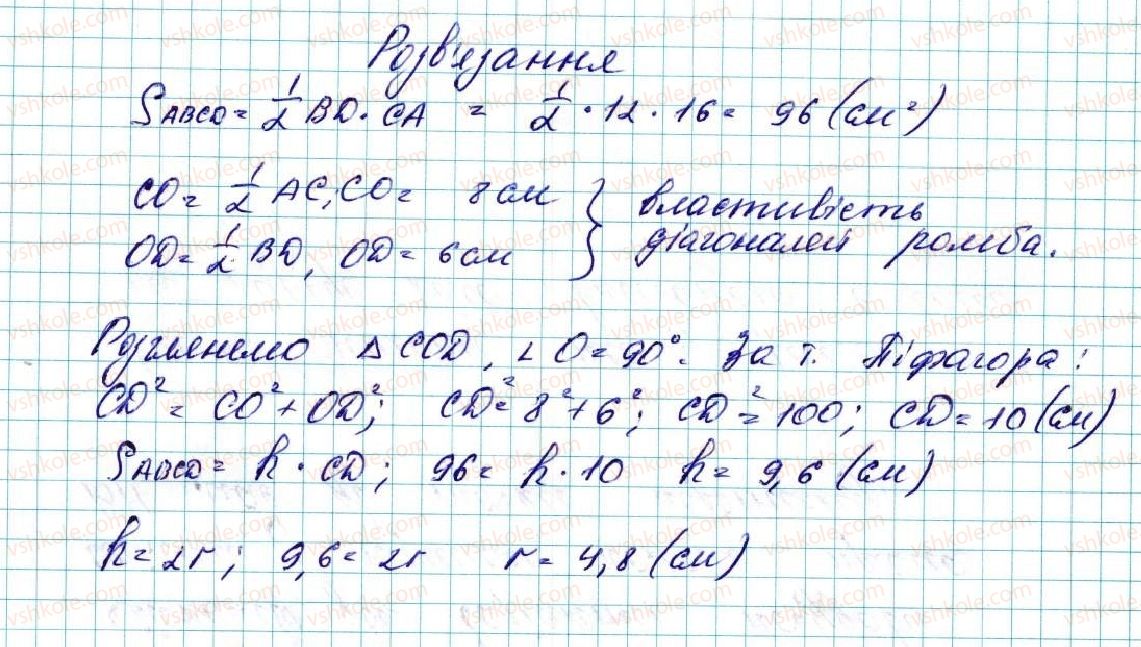 Розв'язання
S ABCD = 1/2 BD · CA = 1/2 · 12 · 16 = 96 (см²)
CO = 1/2 AC; CO = 8 см } властивість
OD = 1/2 BD, OD = 6 см } діагоналей ромба.
Розглянемо Δ COD, ∠ O = 90°. За т. Піфагора:
CD² = CO² + OD²; CD² = 8² + 6²; CD² = 100; CD = 10 (см)
S ABCD = h · CD; 96 = h · 10 h = 9,6 (см)
h = 2r; 9,6 = 2r r = 4,8 (см)